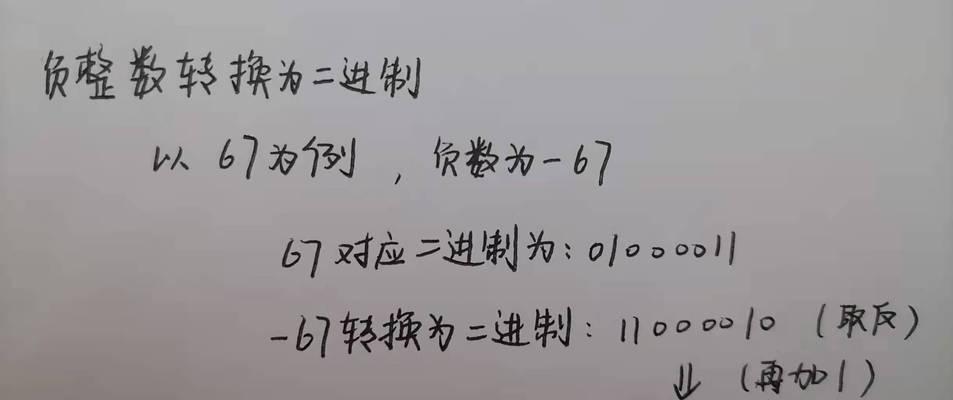 负整数转换为二进制
以 67为例，负数为-67
67对应二进制为：01000011
-67转换为二进制：11000010（取反）
⇓（再加1）